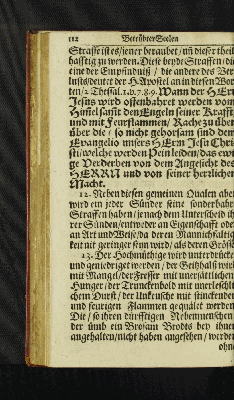 112 Betrübter Seelen
Straffe ist es/jener beraubet/ uñ dieser theil
hafftig zu werden. Diese beyde Straffen/ die
eine der Empfindniß / die andere des Ver
lusts/deutet der H. Apostel an in diesen Wor
ten/2 Thessal. 1. v. 7. 8. 9. Wann der HErr
Jesus wird offenbahret werden vom
Him̃el sampt den Engeln seiner Krafft
und mit Feurflammen/ Rache zu üben
über die / so nicht gehorsam sind dem
Evangelio unsers HErrn Jesu Chri
sti/welche werden Pein leiden/das ewi
ge Verderben von dem Angesicht des
HERRN und von seiner herrlichen
Macht.
12. Neben diesen gemeinen Qualen aber
wird ein jeder Sünder seine sonderbahre
Straffen haben/ je nach dem Unterscheid ih
rer Sünden/entweder an Eigenschafft oder
an Art und Weise/da deren Mannichfältig
keit nit geringer seyn wird/ als deren Grösse
13. Der Hochmüthige wird unterdrückt
und geniedriget werden / der Geitzhals wird
mit Mangel/der Fresser mit unersättlichen
Hunger / der Trunckenbold mit unerleschli
chem Durst / der Unkeusche mit stinckenden
und feurigen Flammen gequälet werden
Die / so ihren dürfftigen Nebenmenschen
der ümb ein Brosam Brodts bey ihnen
angehalten/nicht haben angesehen / werden
ohne